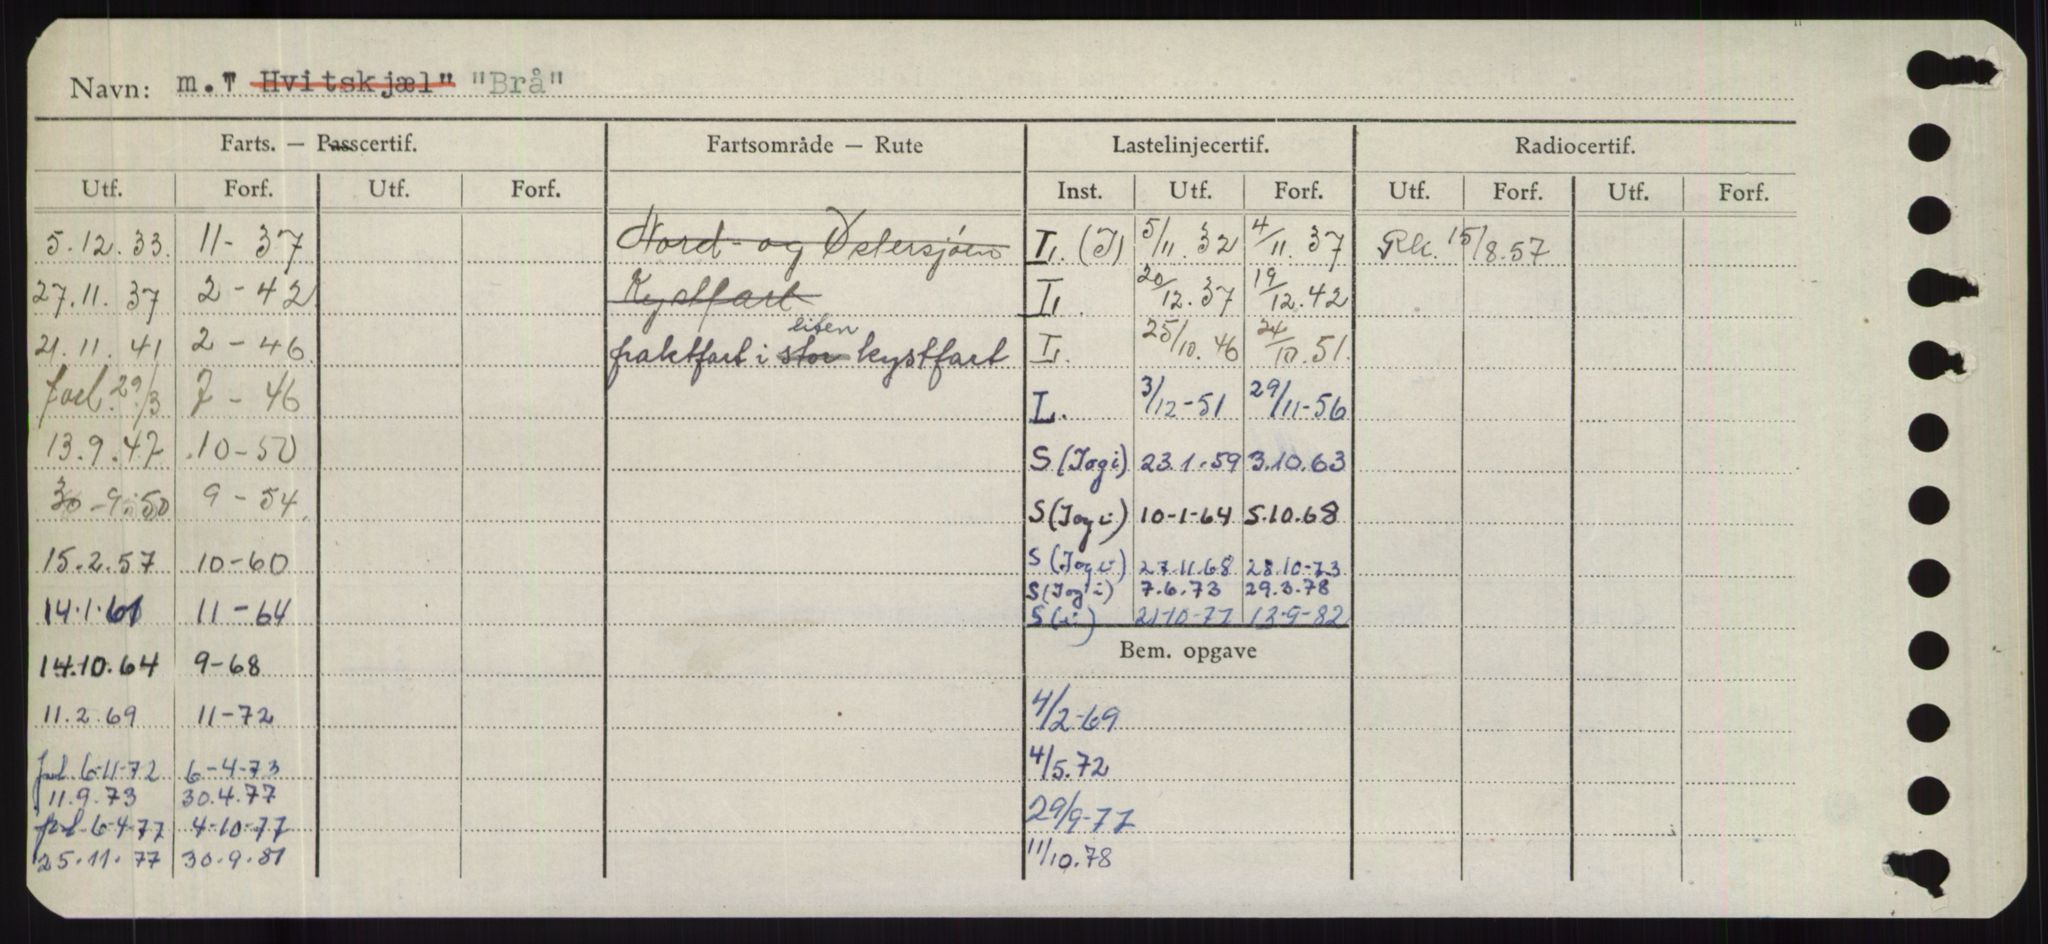 Navn: m.T ~~Hvitskjæl"~~ "Brå"
Farts. — ~~Pass~~certif. | Fartsområde — Rute | Lastelinjecertif. | Radiocertif.
Utf. | Forf. | Utf. | Forf. | Inst. | Utf. | Forf. | Utf. | Forf. | Utf. | Forf.
5.12.33. | 11-37 | ~~Nord- og Østersjøen~~ | L. (I) | 5/11.32 | 4/11.37 | Rk. 15/8.57
27.11.37 | 2-42 | ~~Kystfart~~ | L. | 20/12.37 | 19/12.42
21.11.41 | 2-46. | fraktfart i ~~stor~~ liten kystfart | L. | 25/10.46 | 24/10.51.
forl. 29/3 | 7-46 | L. | 3/12-51 | 29/11-56
13.9.47 | 10-50 | S (I og i) | 23.1.59 | 3.10.63
30-9.50 | 9-54. | S (I og i) | 10-1-64 | 5.10.68
15.2.57 | 10-60 | S (I og i) | 27.11.68 | 28.10-73
S (I og i) | 7.6.73 | 29.3.78
14.1.61 | 11-64 | S (i) | 21-10-77 | 13-9-82
Bem. opgave
14.10.64 | 9-68
11.2.69 | 11-72 | 4/2-69
forl. 6-11-72 | 6-4-73 | 4/5.72
11.9.73 | 30.4.77
forl 6-4-77 | 4-10-77 | 29/9-77
25.11.77 | 30.9.81 | 11/10.78